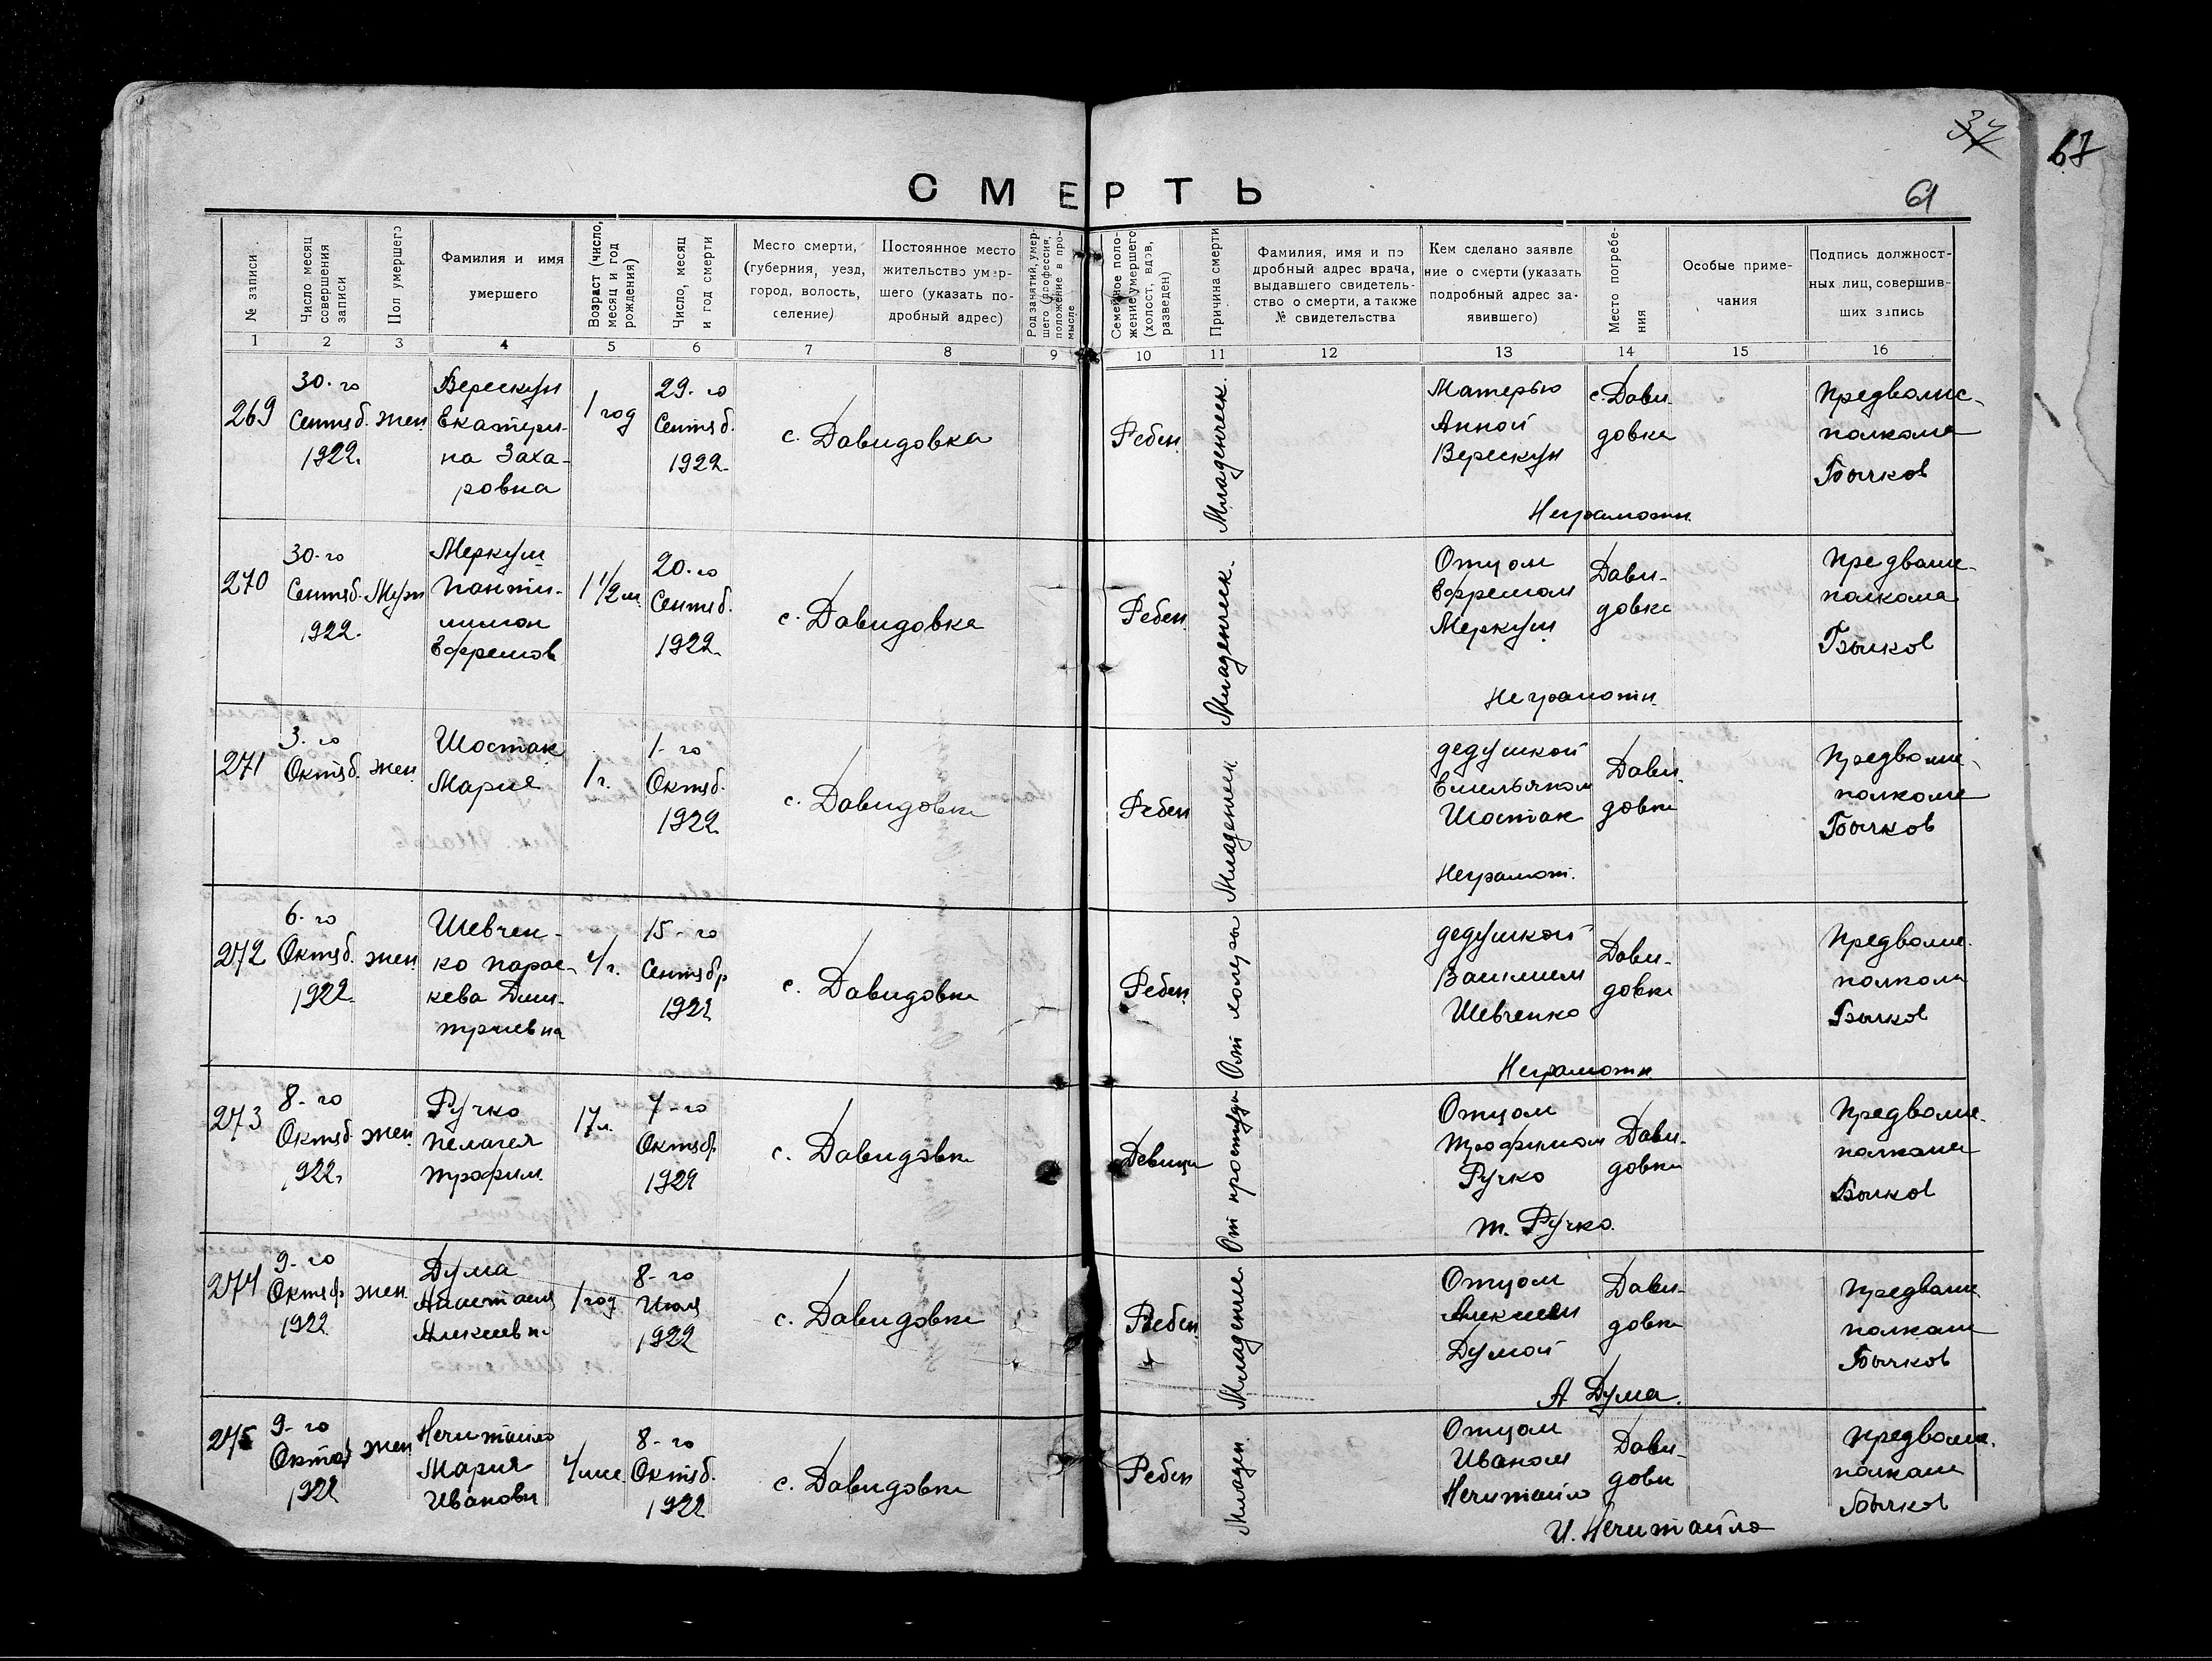 37
67
61
СМЕРТЬ
№ записи
Число месяц совершения записи
Пол умершего
Фамилия и имя умершего
Возраст (число, месяц и год рождения)
Число, месяц и год смерти
Место смерти, (губерния, уезд, город, волость, селение)
Постоянное место жительство умершего (указать подробный адрес)
Род занятий, умершего (профессия, положение в промысле
Семейное положение умершего (холост, вдов, разведен)
Причина смерти
Фамилия, имя и подробный адрес врача, выдавшего свидетельство о смерти, а также № свидетельства
Кем сделано заявление о смерти (указать подробный адрес заявившего)
Место погребения
Особые примечания
Подпись должностных лиц, совершивших запись
1 2 3 4 5 6 7 8 9 10 11 12 13 14 15 16
269
30-го Сентяб. 1922.
жен.
Верескун Екатерина Захаровна
1 год
29-го Сентяб. 1922.
с. Давидовка
Ребен.
Младенческ.
Матерью Анной Верескун
Неграмотн.
с. Давидовка
Предволисполкома Бычков
270
30-го Сентяб. 1922.
Муж
Меркуш Пантилимон Ефремов
1 1/2 м.
20-го Сентяб. 1922.
с. Давидовка
Ребен.
Младенческ.
Отцом Ефремом Меркуш
Неграмотн.
Давидовка
Бычков
271
3-го Октяб.
жен.
Шостак Мария
1 г.
1-го Октяб. 1922
с. Давидовка
Ребен
Младенческ.
дедушкой Емельяном Шостак
Неграмот.
Давидовка
Бычков
272
6-го Октяб. 1922.
жен.
Шевченко Параскева Дмитриевна
4 г.
15-го Сентябр 1922
с. Давидовка
Ребен.
От холеры
дедушкой Шевченко
Неграмотн
Давидовка
Бычков
273
8-го Октяб. 1922.
жен.
Ручко Пелагея Трофим.
17 л.
7-го Октяб. 1922
с. Давидовка
Девица
От простуды
Отцом Трофимом Ручко
Т. Ручко.
Давидовка
Бычков
274
9-го Октяб. 1922
жен.
Дума Алексеевн.
1 год
8-го Июля 1922
с. Давидовка
Ребен.
Младенческ.
Отцом Алексеем Думой
А Дума.
Давидовка
Бычков
275
9-го 1922
жен
Нечитайло Мария Ивановн
8-го Октяб. 1922
с. Давидовка
Ребен
Младен.
Отцом Иваном Нечитайло
И. Нечитайло
Бычков